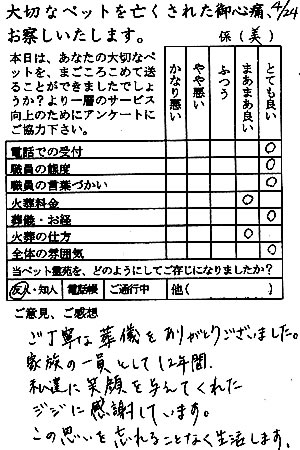 大切なペットを亡くされた御心痛、4/24
お察しいたします。 係(美)
本日は、あなたの大切なペットを、まごころこめて送ることができましたでしょうか?より一層のサービス向上のためにアンケートにご協力下さい。
かなり悪い
やや悪い
ふつう
まあまあ良い
とても良い
電話での受付 ○
職員の態度 ○
職員の言葉づかい ○
火葬料金 ○
葬儀・お経 ○
火葬の仕方 ○
全体の雰囲気 ○
当ペット霊苑を、どのようにしてご存じになりましたか?
友人・知人 電話帳 ご通行中 他( )
ご意見、ご感想
ご丁寧な葬儀をありがとうございました。
家族の一員として12年間、
私達に笑顔を与えてくれた
ジジに感謝しています。
この思いを忘れることなく生活します。